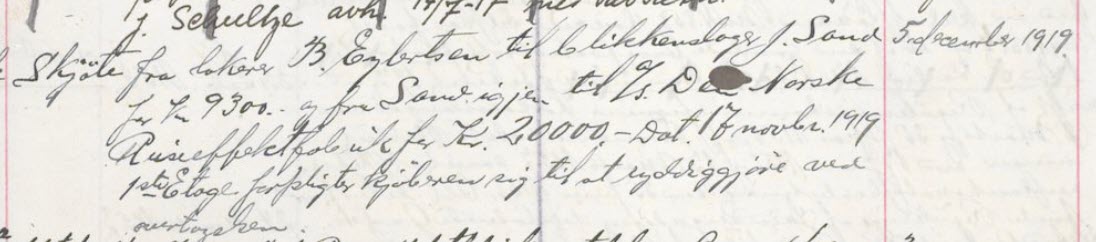 J. Schultze avh. 17/7-17
Skjøte fra lakerer B. Egbertsen til blikkenslager J. Sand 5. december 1919.
for kr 9300.- og fra Sand igjen til A/s. Den Norske
Reiseffektfabrik for Kr. 20000.- Dat. 17 novbr. 1919
1ste Etage forpligter kjøberen sig til at ryddiggjøre ved
overtagelsen.